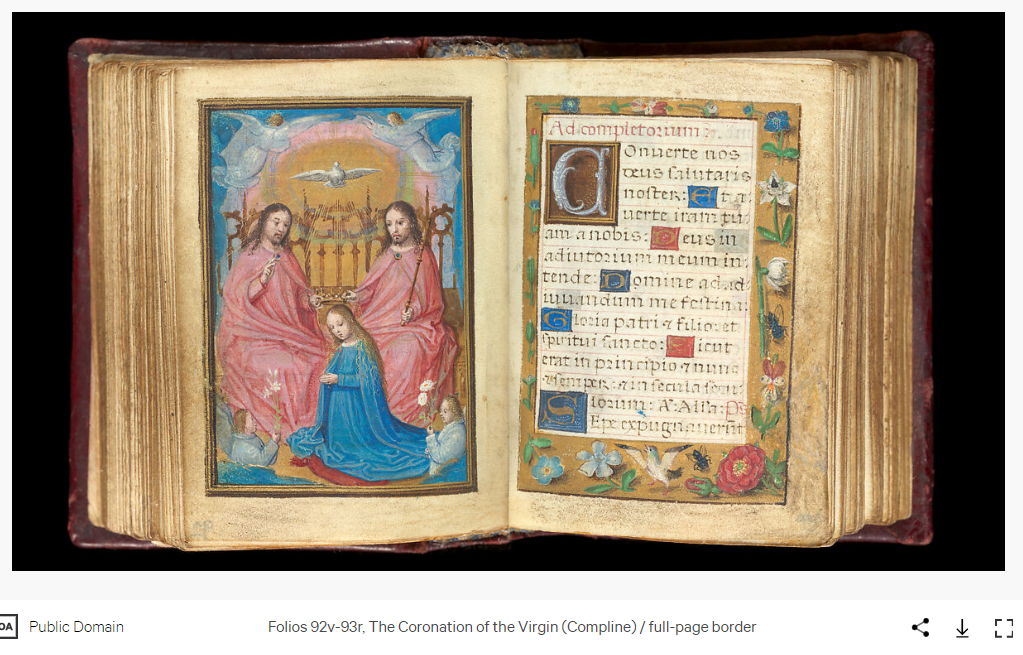 Ad completorium:
Conuerte nos
deus salutaris
noster: Et a
uerte iram tu
am a nobis: Deus in
adiutorium meum in
tende: Domine ad ad
iuuandum me festina:
Gloria patri & filio: et
spiritui sancto: Sicut
erat in principio & nunc
& semper: & in secula secu
lorum: A. Alla: Ps
Sepe expugnauerūt
OA Public Domain
Folios 92v-93r, The Coronation of the Virgin (Compline) / full-page border